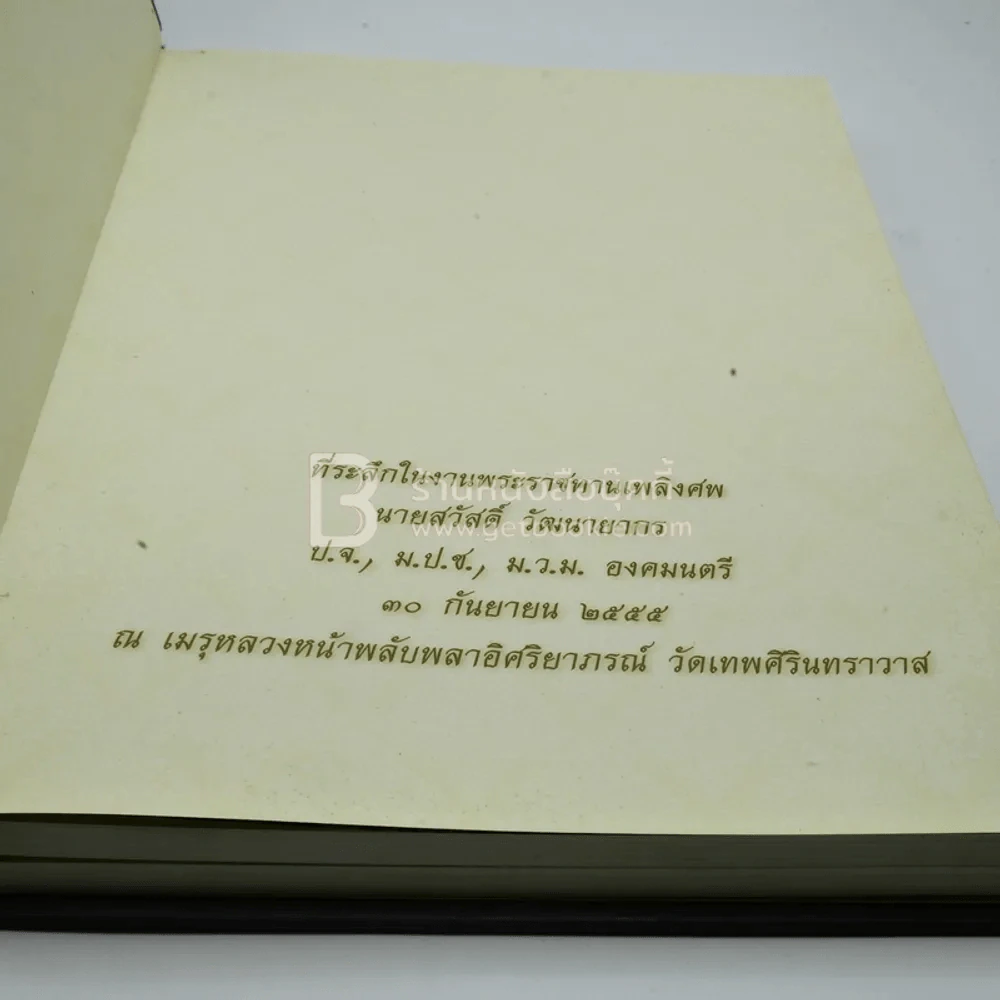 ที่ระลึกในงานพระราชทานเพลิงศพ
ร้านหนังสือบุ๊คกี้
นายสวัสดิ์ วัฒนายากร
ป.จ., ม.ป.ช., ม.ว.ม. องคมนตรี
๓๐ กันยายน ๒๕๕๕
ณ เมรุหลวงหน้าพลับพลาอิศริยาภรณ์ วัดเทพศิรินทราวาส